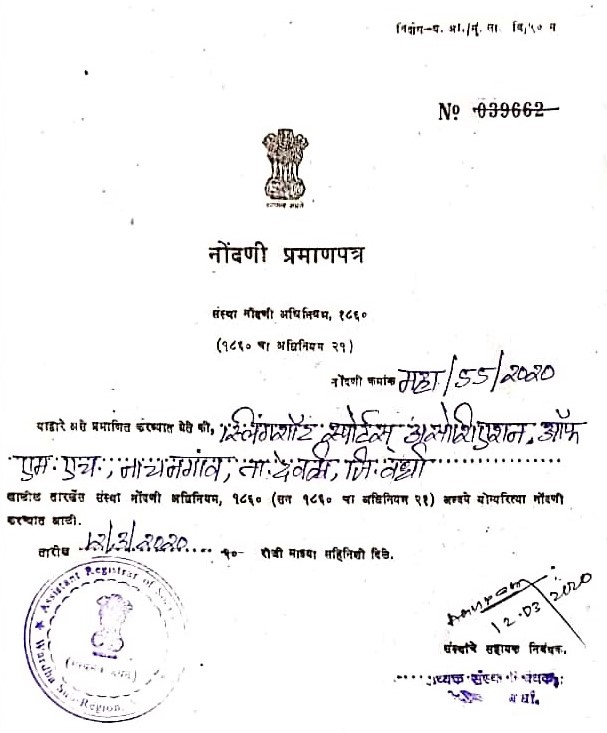 नि मं०-प. आ./मुं. ता. वि,५० म
№ 039662
सत्यमेव जयते
नोंदणी प्रमाणपत्र
संस्था नोंदणी अधिनियम, १८६०
(१८६० चा अधिनियम २१)
नोंदणी क्रमांक महा/55/2020
याद्वारे असे प्रमाणित करण्यात येते की, स्लिंगशॉट स्पोर्टस् असोशिएशन ऑफ
एम. एच., नाचनगांव, ता. देवळी, जि. वर्धा
खालील तारखेस संस्था नोंदणी अधिनियम, १८६० (सन १८६० चा अधिनियम २१) अन्वये योग्यरित्या नोंदणी
करण्यात आली.
तारीख 12/3/2020 २० रोजी माझ्या सहिनिशी दिले.
Assistant Registrar of
Wardha Sub-Region
12.03/2020
संस्थांचे सहायक निबंधक.